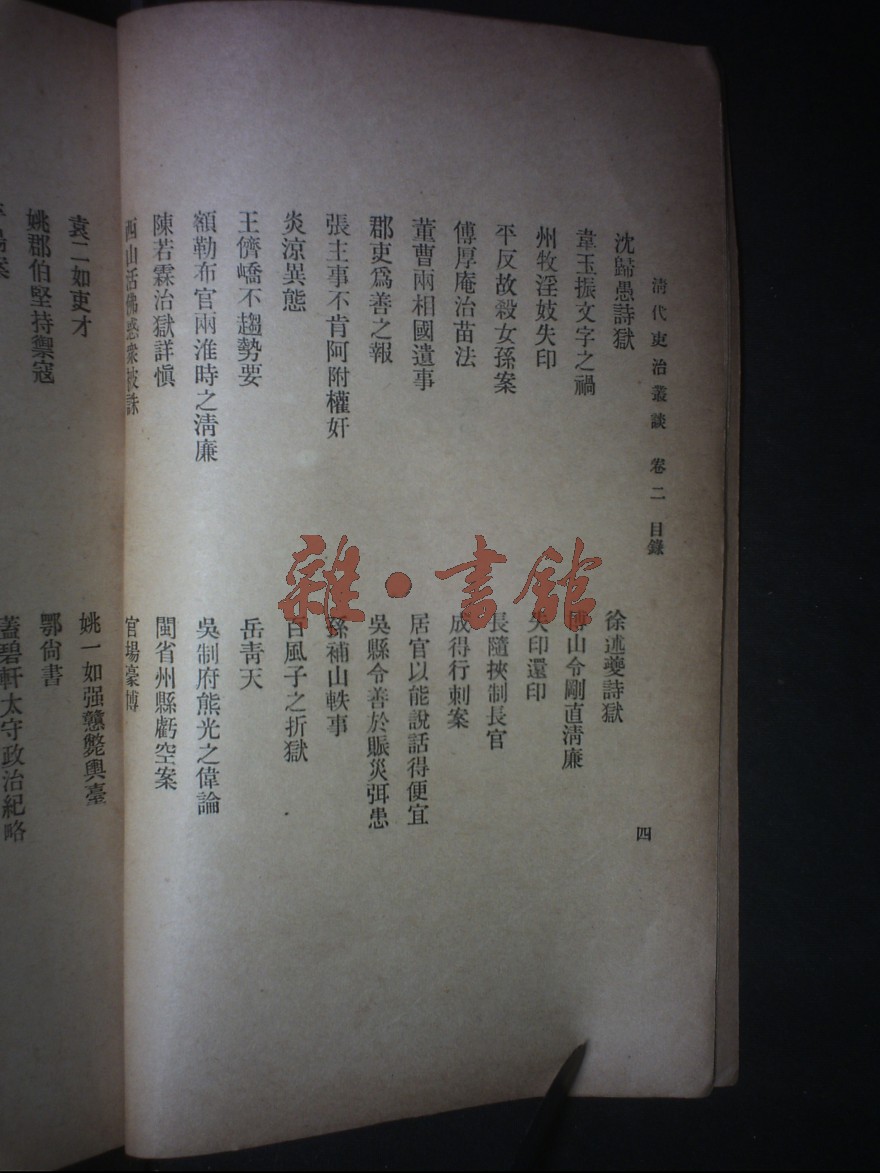 清代吏治叢談 卷二 目錄
四
沈歸愚詩獄
徐述夔詩獄
韋玉振文字之禍
博山令剛直淸廉
州牧淫妓失印
失印還印
平反故殺女孫案
長隨挾制長官
傅厚庵治苗法
成得行刺案
董曹兩相國遺事
居官以能說話得便宜
郡吏爲善之報
吳縣令善於賑災弭患
張主事不肯阿附權奸
孫補山軼事
炎涼異態
百風子之折獄
王儕嶠不趨勢要
岳靑天
額勒布官兩淮時之淸廉
吳制府熊光之偉論
陳若霖治獄詳愼
閩省州縣虧空案
西山活佛惑衆被誅
官場豪博
袁二如吏才
姚一如强戇斃輿臺
姚郡伯堅持禦寇
鄂尙書
蓋碧軒太守政治紀略
雜·書館